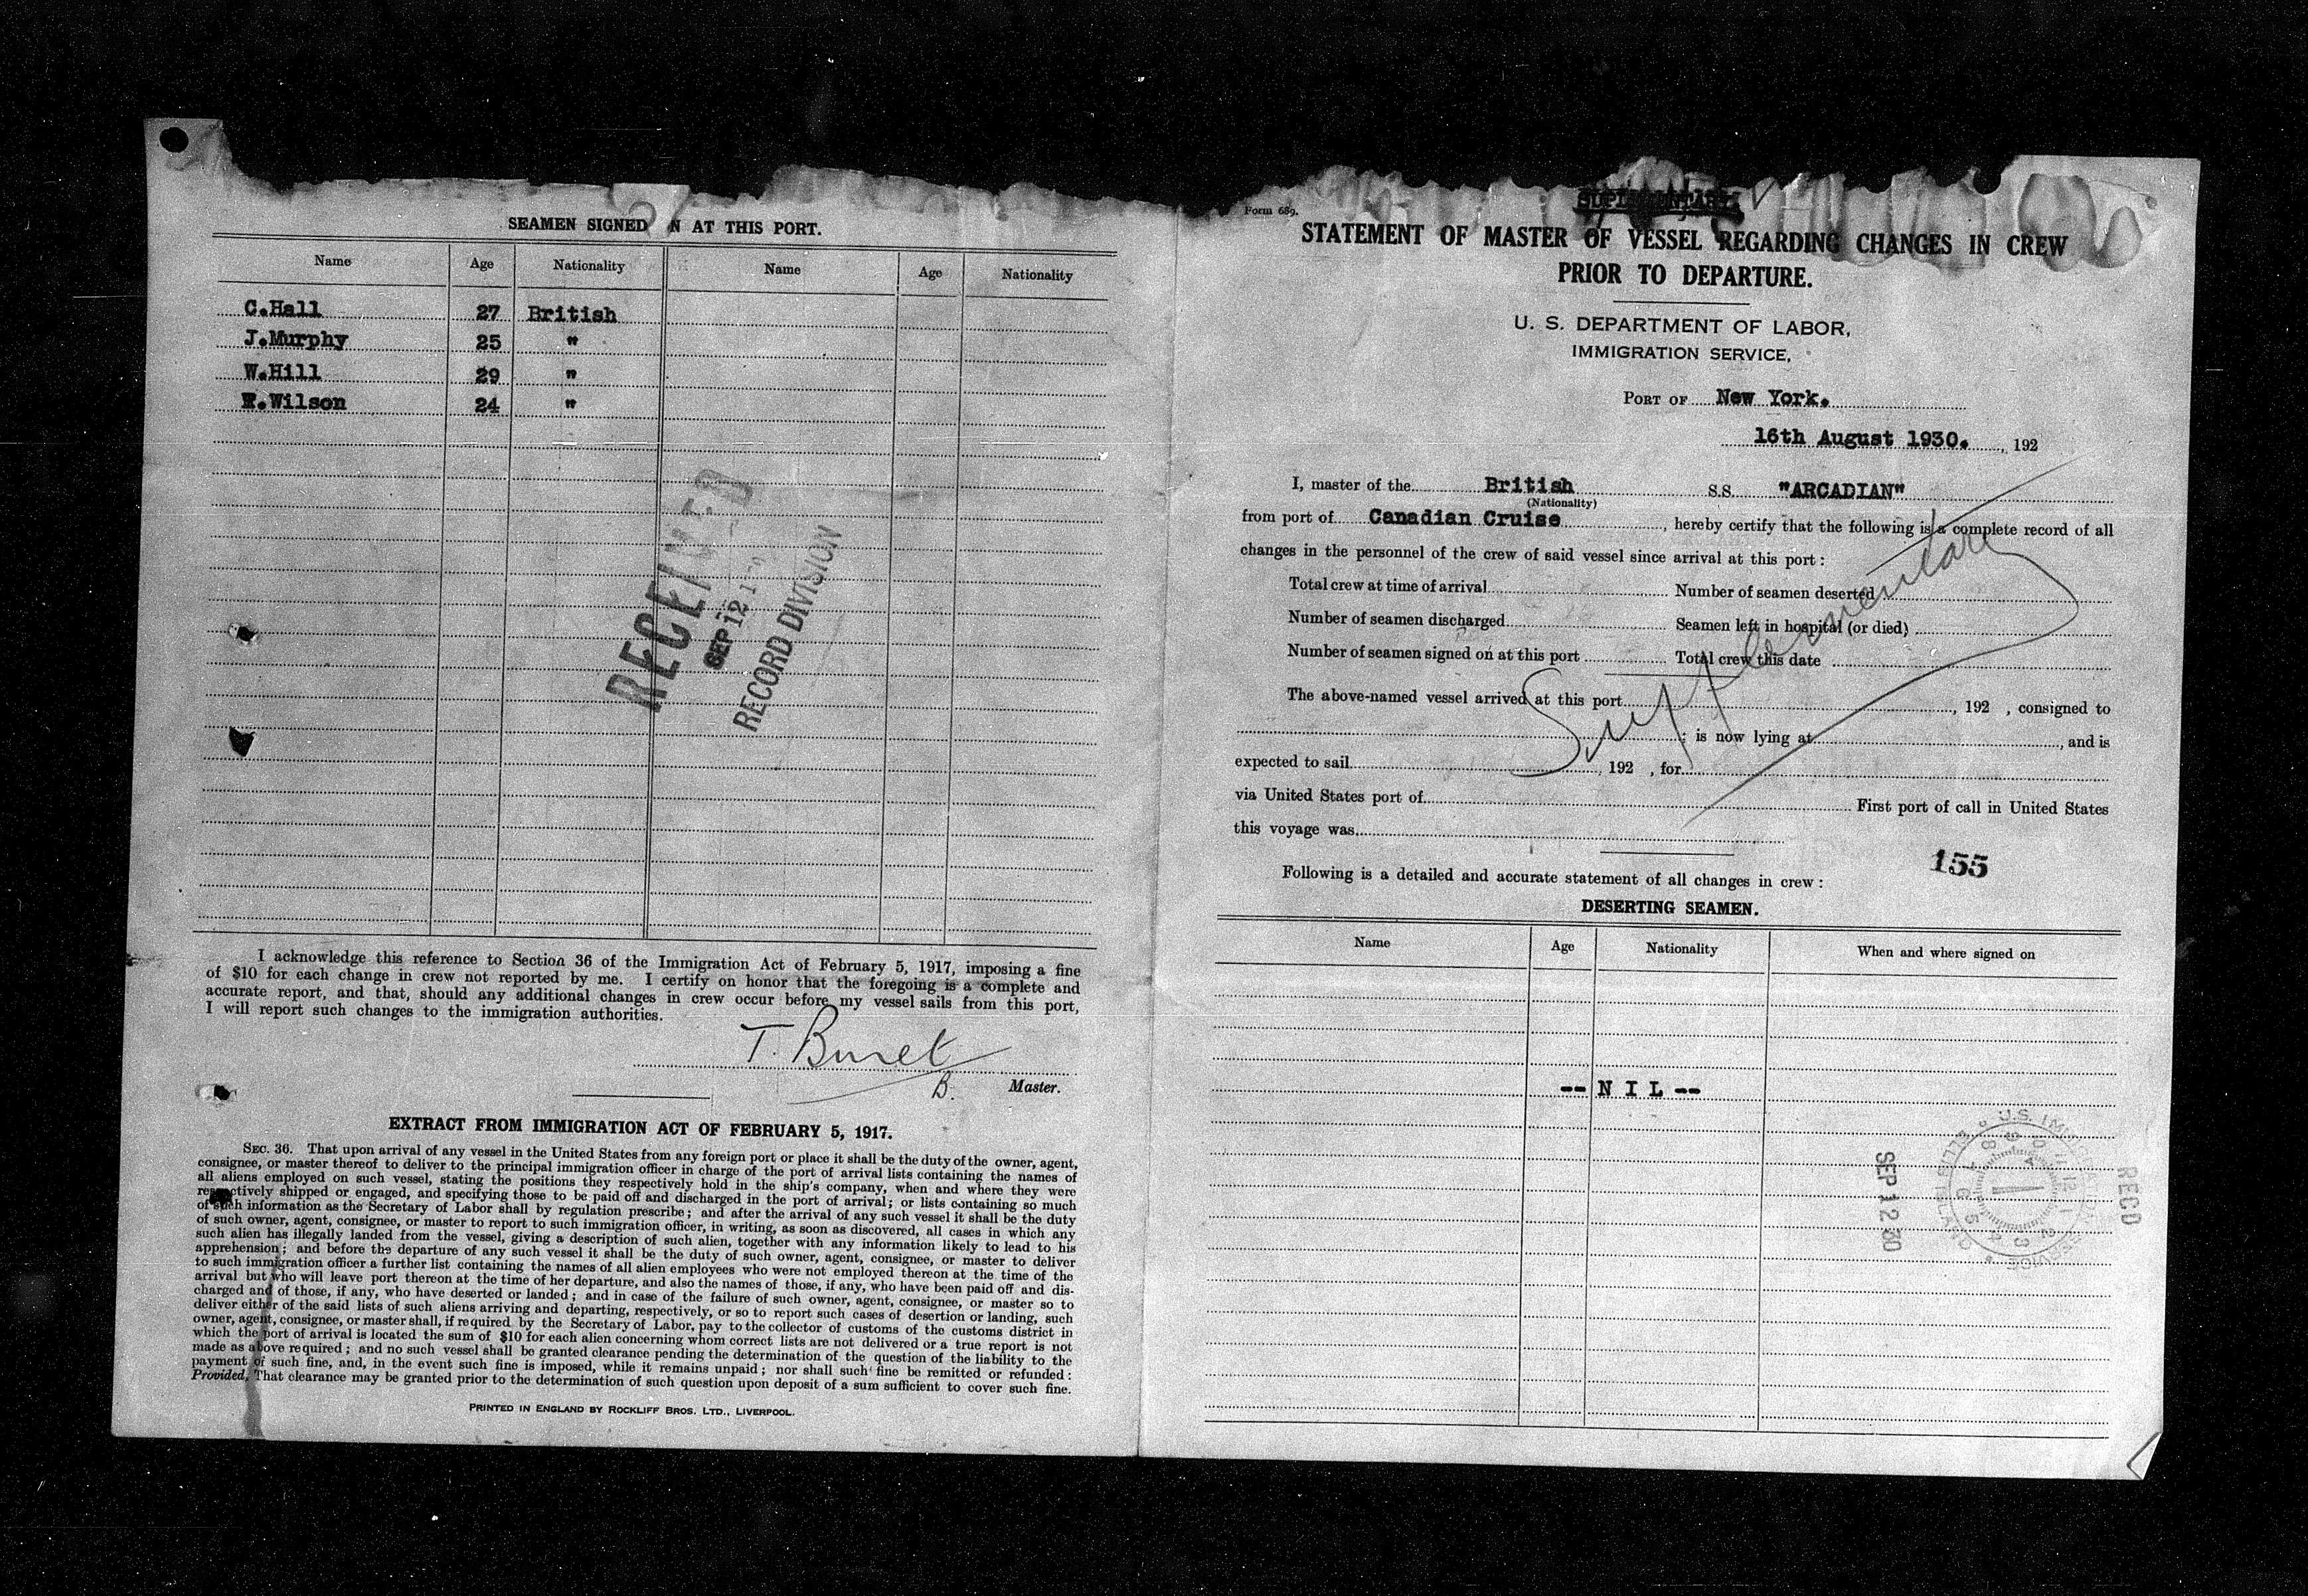 SEAMEN SIGNED N AT THIS PORT.
Name Age Nationality Name Age Nationality
C.Hall 27 British
J.Murphy 25 "
W.Hill 29 "
Wilson 24 "
RECEIVED
SEP 12 1
RECORD DIVISION
I acknowledge this reference to Section 36 of the Immigration Act of February 5, 1917, imposing a fine
of $10 for each change in crew not reported by me. I certify on honor that the foregoing is a complete and
accurate report, and that, should any additional changes in crew occur before my vessel sails from this port,
I will report such changes to the immigration authorities.
T.
B. Master.
EXTRACT FROM IMMIGRATION ACT OF FEBRUARY 5, 1917.
SEC. 36. That upon arrival of any vessel in the United States from any foreign port or place it shall be the duty of the owner, agent,
consignee, or master thereof to deliver to the principal immigration officer in charge of the port of arrival lists containing the names of
all aliens employed on such vessel, stating the positions they respectively hold in the ship's company, when and where they were
respectively shipped or engaged, and specifying those to be paid off and discharged in the port of arrival; or lists containing so much
of such information as the Secretary of Labor shall by regulation prescribe; and after the arrival of any such vessel it shall be the duty
of such owner, agent, consignee, or master to report to such immigration officer, in writing, as soon as discovered, all cases in which any
such alien has illegally landed from the vessel, giving a description of such alien, together with any information likely to lead to his
apprehension; and before the departure of any such vessel it shall be the duty of such owner, agent, consignee, or master to deliver
to such immigration officer a further list containing the names of all alien employees who were not employed thereon at the time of the
arrival but who will leave port thereon at the time of her departure, and also the names of those, if any, who have been paid off and dis-
charged and of those, if any, who have deserted or landed; and in case of the failure of such owner, agent, consignee, or master so to
deliver either of the said lists of such aliens arriving and departing, respectively, or so to report such cases of desertion or landing, such
owner, agent, consignee, or master shall, if required by the Secretary of Labor, pay to the collector of customs of the customs district in
which the port of arrival is located the sum of $10 for each alien concerning whom correct lists are not delivered or a true report is not
made as above required; and no such vessel shall be granted clearance pending the determination of the question of the liability to the
payment of such fine, and, in the event such fine is imposed, while it remains unpaid; nor shall such fine be remitted or refunded:
Provided, That clearance may be granted prior to the determination of such question upon deposit of a sum sufficient to cover such fine.
PRINTED IN ENGLAND BY ROCKLIFF BROS. LTD., LIVERPOOL.
SUPPLEMENTARY
Form 689.
STATEMENT OF MASTER OF VESSEL REGARDING CHANGES IN CREW
PRIOR TO DEPARTURE.
U. S. DEPARTMENT OF LABOR,
IMMIGRATION SERVICE,
PORT OF New York.
16th August 1930. , 192
I, master of the British S.S. "ARCADIAN"
(Nationality)
from port of Canadian Cruise , hereby certify that the following is a complete record of all
changes in the personnel of the crew of said vessel since arrival at this port :
Total crew at time of arrival Number of seamen deserted
Number of seamen discharged Seamen left in hospital (or died)
Number of seamen signed on at this port Total crew this date
Supplementary
The above-named vessel arrived at this port , 192 , consigned to
; is now lying at , and is
expected to sail , 192 , for
via United States port of First port of call in United States
this voyage was
155
Following is a detailed and accurate statement of all changes in crew :
DESERTING SEAMEN.
Name Age Nationality When and where signed on
-- N I L --
U.S. IMMIGRATION SERVICE ELLIS ISLAND
RECD
SEP 12 30